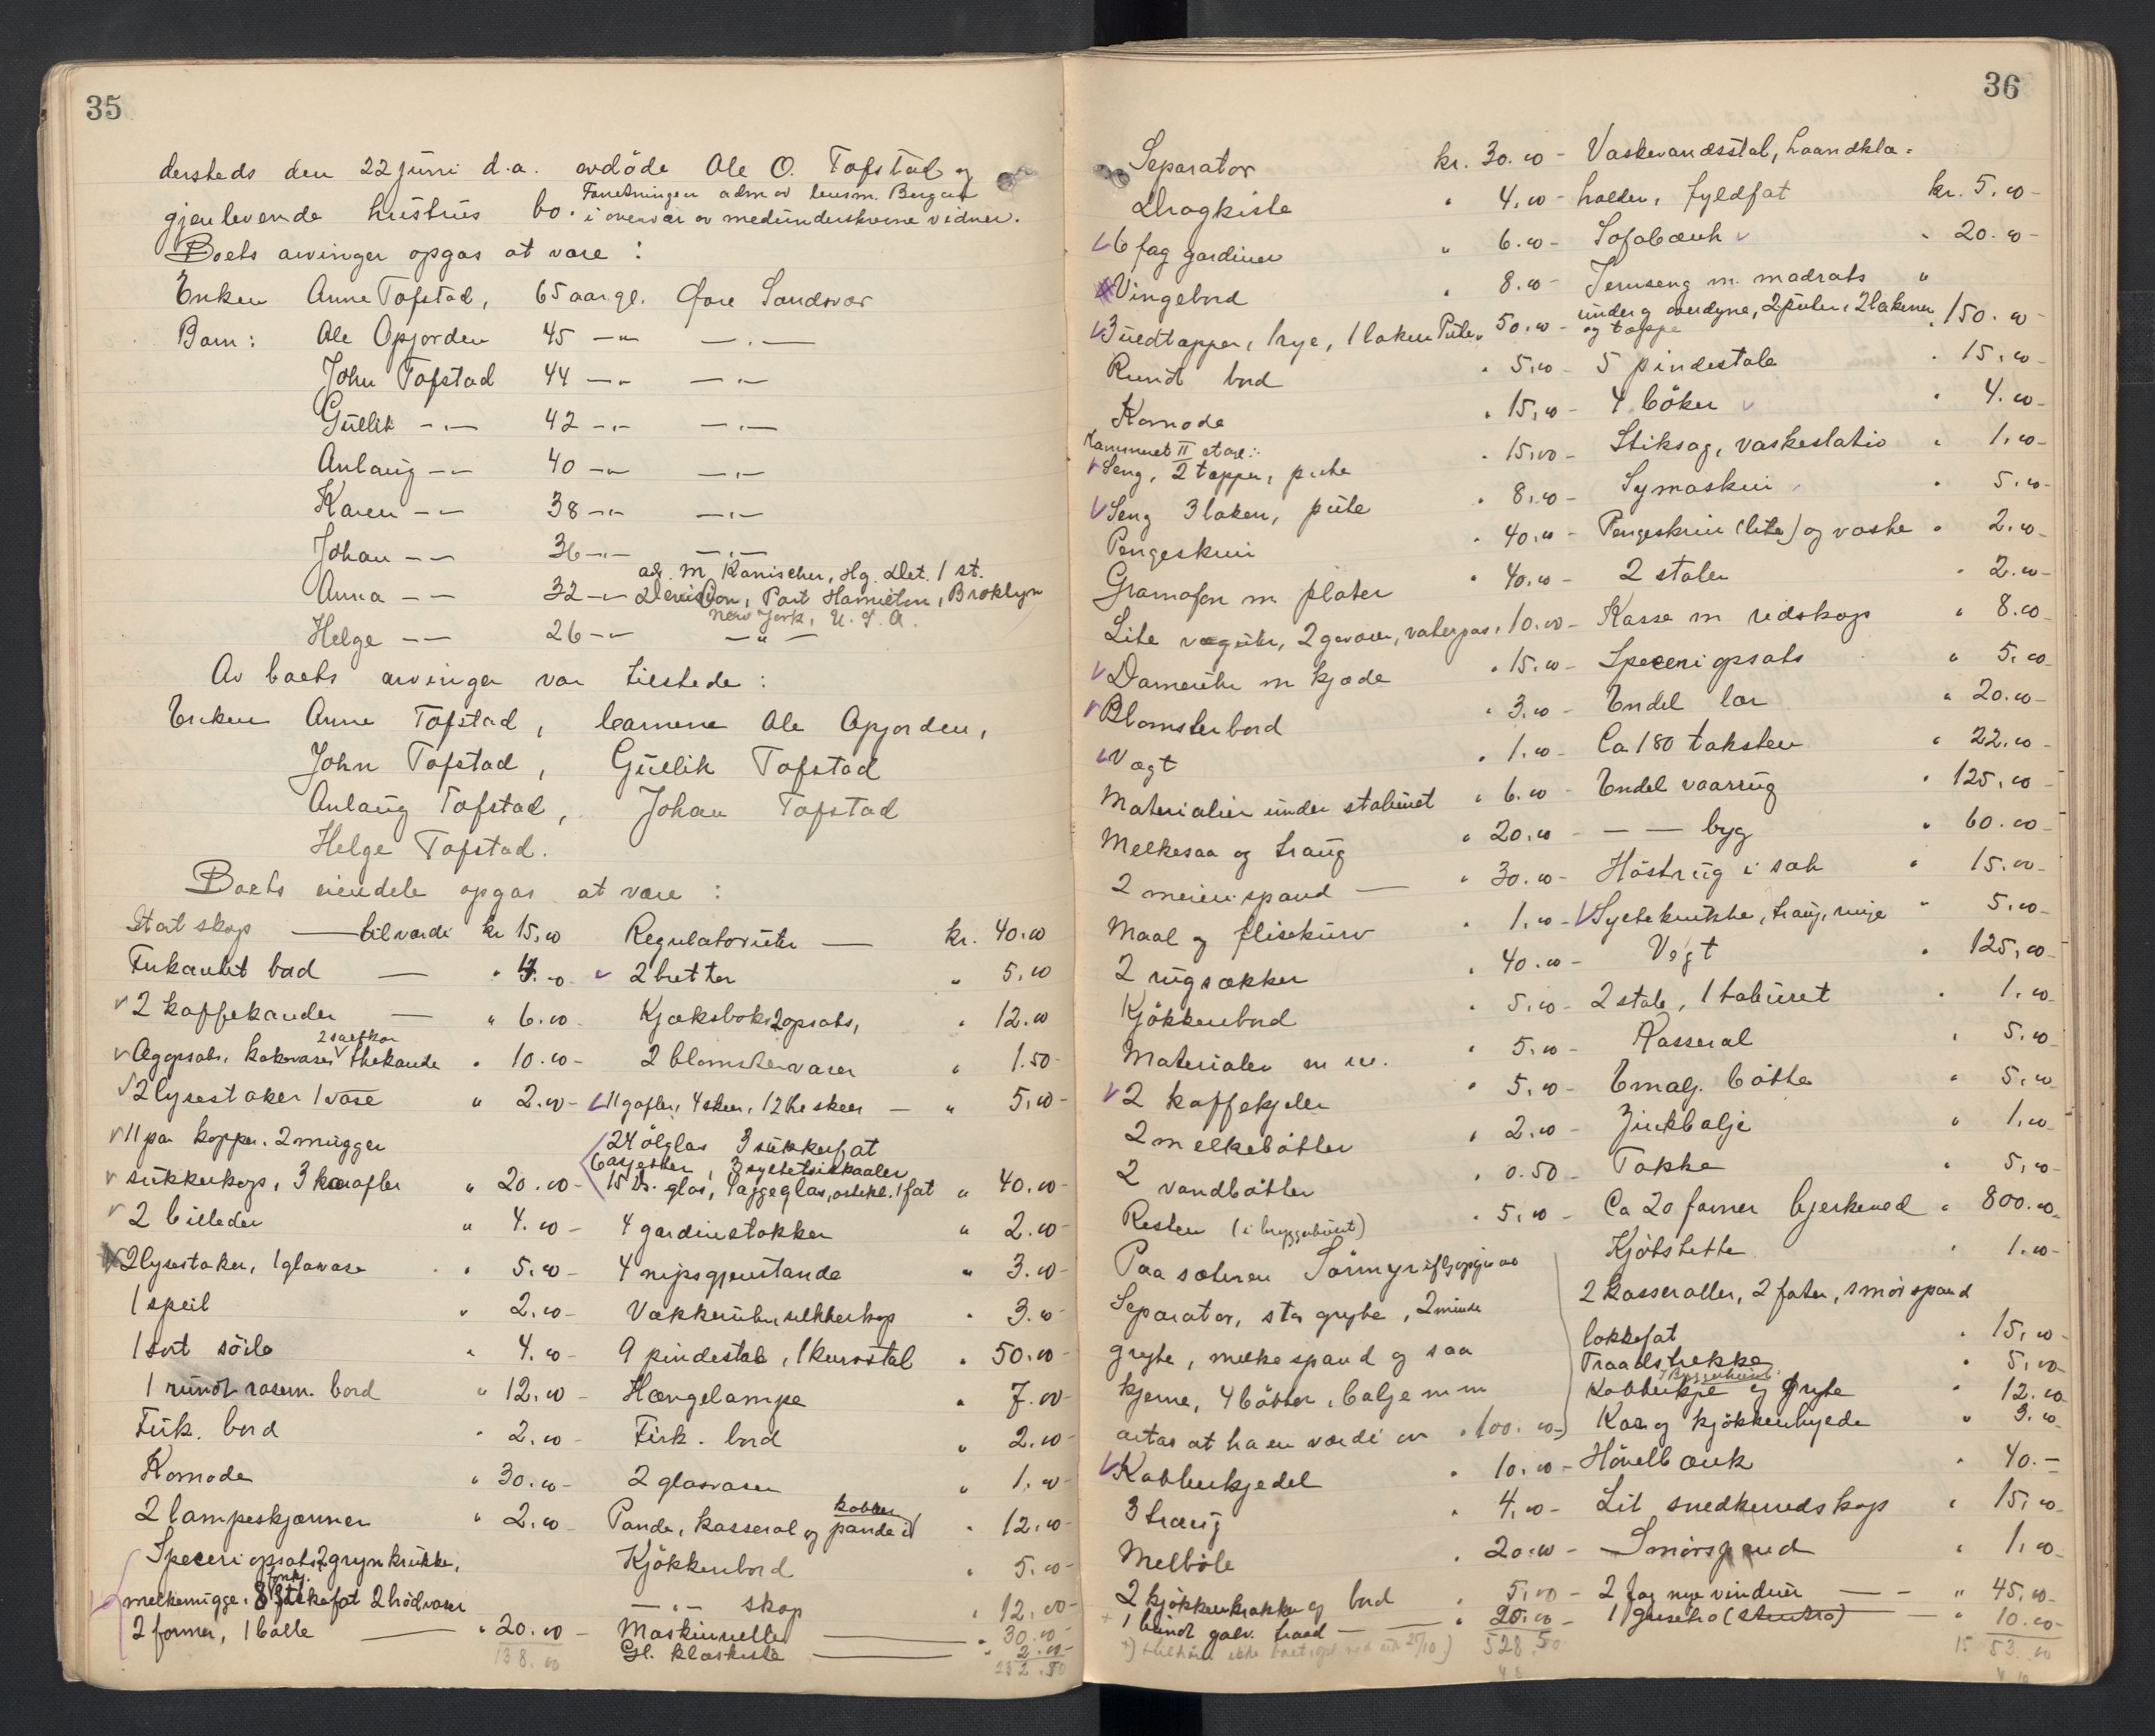 35
dersteds den 22 juni d.a. avdöde Ole O. Tofstad og
Forretningen adm av lensm. Bergan
gjenlevende hustrus bo. i overvær av medunderskrevne vidner.
Boets arvinger opgas at være :
Enken Anne Tofstad, 65 aar gl. Øvre Sandsvær
Barn: Ole Opjorden 45 —"— —"—
John Tofstad 44 —"— —"—
Gullik —"— 42 —"— —"—
Anlaug —"— 40 —"— —"—
Karen —"— 38 —"— —"—
Johan —"— 36 —"— —"—
adr. M. Kanischer, Hg. Det. 1 st.
Anna —"— 32 —"— Division, Port Hamilton, Broklyn
New York, U.S.A.
Helge —"— 26 —"— —"—
Av boets arvinger var tilstede :
Enken Anne Tofstad, barnene Ole Opjorden,
John Tofstad, Gullik Tofstad
Anlaug Tofstad, Johan Tofstad
Helge Tofstad.
Boets eiendele opgas at være :
Stort skap — til værdi kr 15,00 Regulatoruhr — kr. 40.00
Firkantet bord — " 4.00 2 bretter " 5.00
2 kaffekander — " 6.00 Kjæksboks 2 opsats, " 12.00
2 saltkar
Ægopsats, kakevaser thekande " 10.00- 2 blomstervaser " 1.50-
2 lysestaker 1 vase " 2.00- 11 gafler, 4 skeer, 12 the skeer — " 5,00-
11 par kopper. 2 mugger 24 ölglas 3 sukkerfat
6 asjetter, 3 syltetöiskaaler
sukkerkop, 3 karafler " 20.00- 15 dr. glas, 4 æggeglas, ostekl. 1 fat " 40.00-
2 billeder " 4.00- 4 gardinstokker " 2.00-
2 lysestaker, 1 glasvase " 5.00- 4 nipsgjenstande " 3.00-
1 speil " 2.00- Vækkeruhr, sukkerkop " 3.00-
1 sort söile " 4.00- 9 pindestole, 1 kurvstol " 50.00-
1 rundt rosem. bord " 12.00- Hængelampe " 7.00-
Firk. bord " 2.00- Firk. bord " 2.00-
Komode " 30.00- 2 glasvaser " 1.00-
kobber
2 lampeskjærmer " 2.00 Pande, kasserol og pande " 12.00-
Speceriopsats, 2 grynkrukke, Kjökkenbord " 5.00-
melkemugge, 8 stekefat 2 brödvaser —"— skap " 12.00-
2 former, 1 bolle — " 20.00- Maskinrulle — " 30.00-
138.00 Gl. klæskiste — " 2.00-
232.50
36
Separator kr. 30.00- Vaskevandsstol, haandklæ-
Dragkiste " 4.00- holder, fyldfat kr. 5.00-
6 fag gardiner " 6.00- Sofabænk " 20.00-
Vingebord " 8.00- Jernseng m. madrats "
under og overdyne, 2 puter, 2 lakener
3 uldtæpper, 1 rye, 1 laken Pute " 50.00- og tæppe " 150.00-
Rundt bord " 5.00- 5 pindestole " 15.00-
Komode " 15.00- 4 böker " 4.00-
Kammeret II etage:
Seng, 2 tæpper, pute " 15.00- Stiksag, vaskestativ " 1.00-
Seng 3 laken, pute " 8.00- Symaskin " 5.00-
Pengeskrin " 40.00- Pengeskrin (lite) og væske " 2.00-
Gramofon m plater " 40.00- 2 stoler " 2.00-
Lite væguhr, 2 geværer, vaterpas " 10.00- Kasse m redskap " 8.00
Dameuhr m kjæde " 15.00- Speceriopsats " 5.00
Blomsterbord " 3.00- Endel lær " 20.00-
Vægt " 1.00- Ca 180 taksten " 22.00-
Materialier under stabburet " 6.00- Endel vaarrug " 125.00-
Melkesaa og traug " 20.00- — — byg " 60.00-
2 meierispand — " 30.00- Höstrug i sæk " 15.00-
Maal og fliskurv " 1.00- Syltekrukke, traug, ringe " 5.00-
2 rugsækker " 40.00- Vogt " 125.00-
Kjökkenbord " 5.00- 2 stole, 1 taburet " 1.00-
Materialer m.m. " 5.00- Kasserol " 5.00
2 kaffekjeler " 5.00- Emalj. bötte " 5.00
2 melkebötter " 2.00- Zinkbalje " 1.00
2 vandbötter " 0.50- Takke " 5.00
Resten (i bryggerhuset) " 5.00- Ca 20 favner bjerkeved " 800.00
Paa sæteren Sörmyr Kjötstette " 1.00-
Separator, stor gryte, 2 mindre 2 kasseroller, 2 fater, smörspand
gryte, melkespand og saa kokkefat " 15.00-
Traadstrekke " 5.00
kjerne, 4 bötter, balje m m I Bryggerhuset
Kobberkjele og gryte " 12.00
antas at ha en værdi av " 100.00- Kar og kjökkenhylde " 3.00
Kobberkjedel " 10.00- Hövelbænk " 40.—
3 traug " 4.00- Lit snedkerredskap " 15.00
Melböle " 20.00- Smörspand " 1.00
2 kjökkenkrakker og bord " 5.00- 2 fag nye vinduer — " 45.00-
+ 1 bundt galv. traad — " 20.00- 1 — " 10.00-
528.50 15 53.00